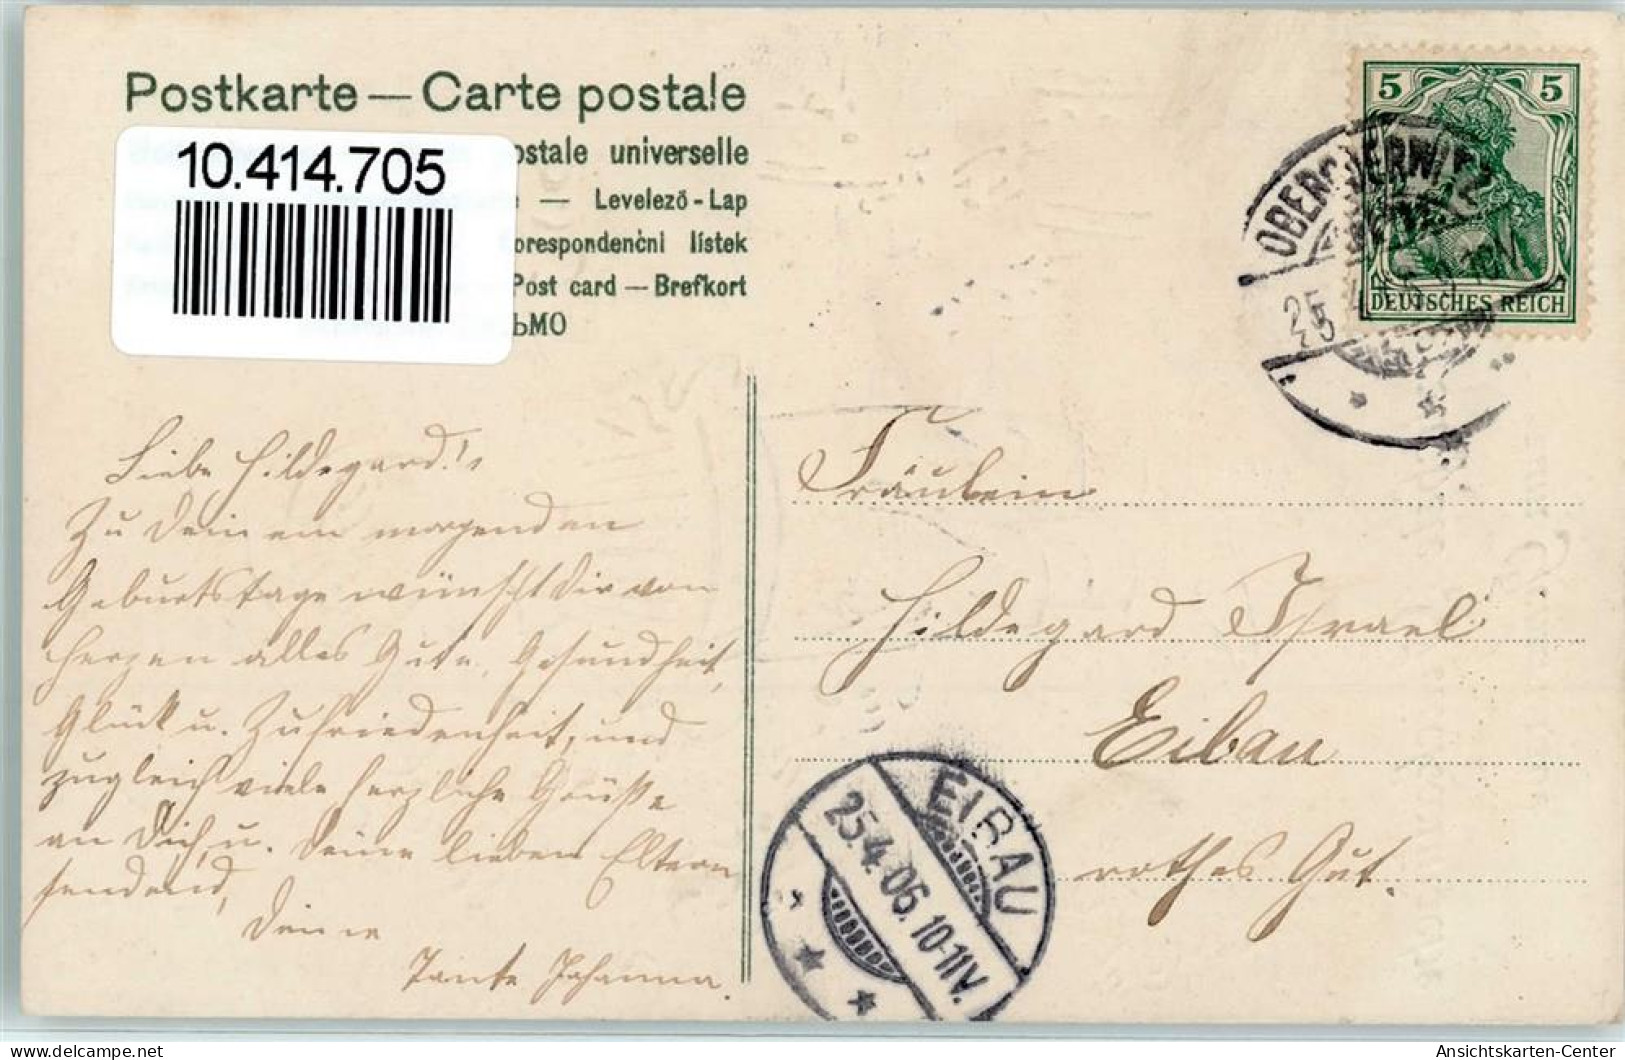 Postkarte — Carte postale
10.414.705
ostale universelle
— Levelező-Lap
orespondenční lístek
Post card — Brefkort
ЬМО
5 5
DEUTSCHES REICH
OBERODERWITZ
25.4.
Liebe Hildegard!
Zu Deinem morgenden
Geburtstage wünscht Dir von
Herzen alles Gute, Gesundheit,
Glück u. Zufriedenheit, und
zugleich viele herzliche Grüße
an Dich, u. Deine lieben Eltern
sendend,
Deine
Tante Johanna.
Fräulein
Hildegard Israel
Eibau
rothes Gut.
EIBAU
25.4.06. 10-11V.
delcampe.net
Ansichtskarten-Center